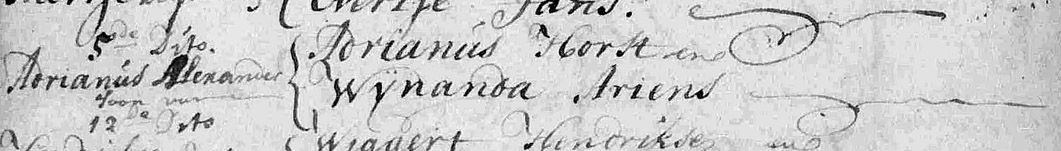 Evertse Jans.
5de Dito.
Adrianus Alexander
Soon van
12de Dito
Adrianus Horst en
Wÿnanda Ariens
Wiggert Hendrikse en